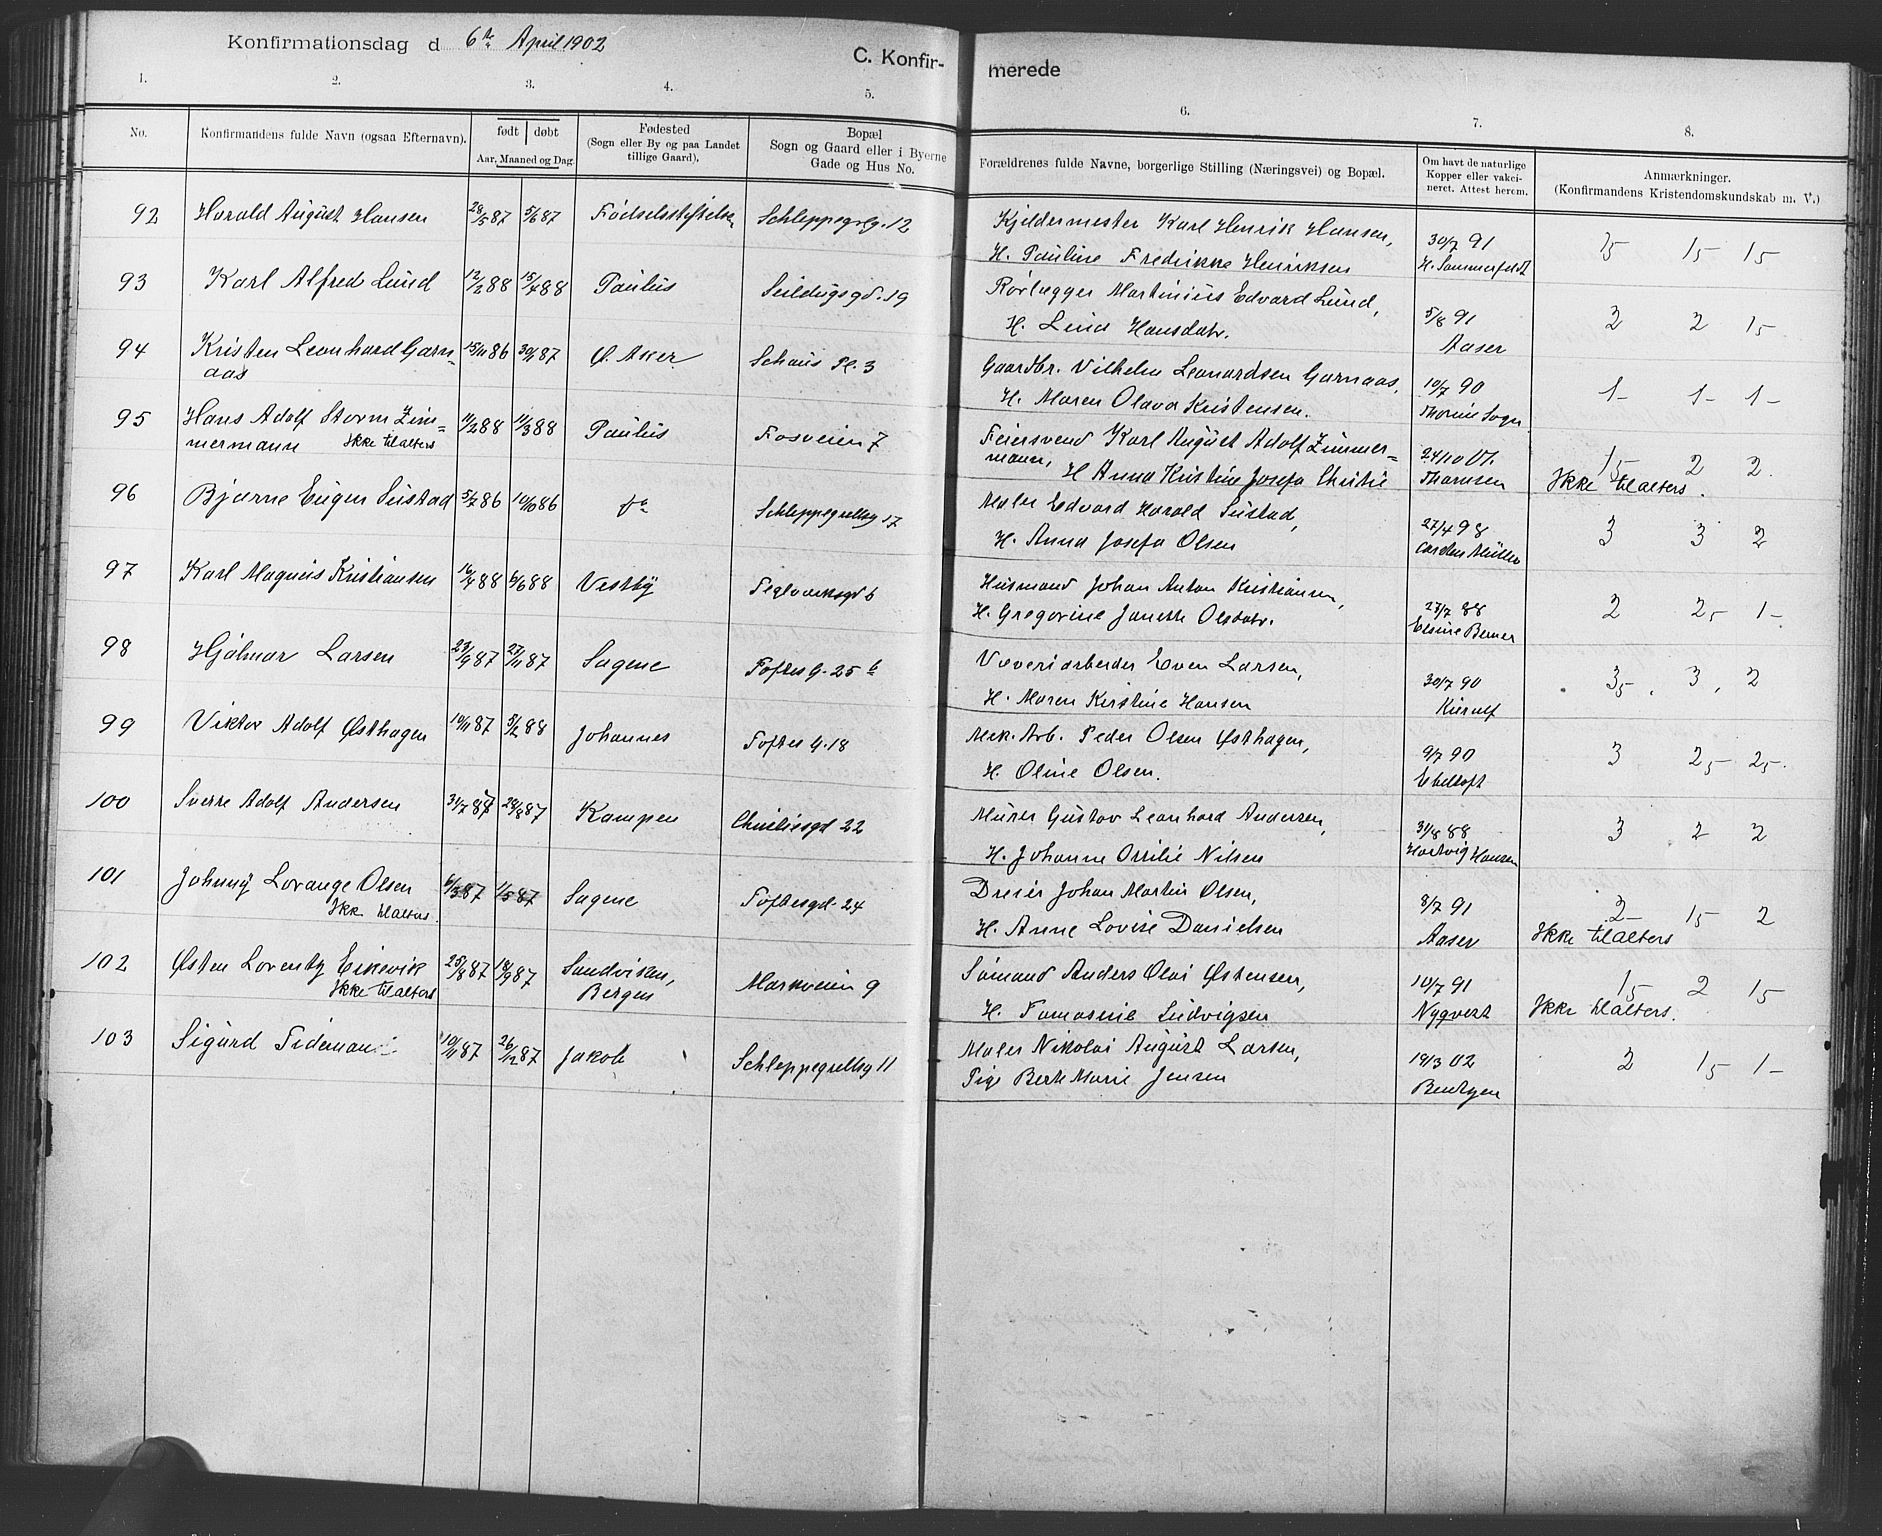 Konfirmationsdag d 6te April 1902
C. Konfir- merede
1. 2. 3. 4. 5. 6. 7. 8.
No. Konfirmandens fulde Navn (ogsaa Efternavn). født døbt Aar, Maaned og Dag. Fødested (Sogn eller By og paa Landet tillige Gaard). Bopæl Sogn og Gaard eller i Byerne Gade og Hus No. Forældrenes fulde Navne, borgerlige Stilling (Næringsvei) og Bopæl. Om havt de naturlige Kopper eller vakcineret. Attest herom. Anmærkninger. (Konfirmandens Kristendomskundskab m. V.)
92 Harald August Hansen 28/5 87 5/6 87 Fødselsstiftelse Schleppegrlg. 12 Kjeldermester Karl Henrik Hansen, 30/7 91
H. Pauline Fredrikke Henriksen H. Sammerfeldt 15 15
93 Karl Alfred Lund 12/2 88 15/4 88 Paulus Seildugsgd. 19 Rørlægger Martinius Edvard Lund, 5/8 91
H. Lina Hansdatr. Aaser 2 2 15
94 Kristen Leonhard Garn= 15/11 86 30/1 87 Ø. Aker Schous Pl. 3 Gaardbr. Vilhelm Leonardsen Garnaas, 10/7 90
aas H. Maren Olava Kristensen. Sogn 1- 1- 1-
95 Hans Adolf Storm Zim= 11/2 88 11/3 88 Paulus Fosveien 7 Feiersvend Karl August Adolf Zimmer= 24/10 01.
mermann Ikke til alters mann, H Anna Kristine Josefa Christie Thoresen 15 2 2.
Ikke til alters.
96 Bjarne Eugen Sustad 5/7 86 10/10 86 do Schleppegrellsg 17 Maler Edvard Harald Sustad, 27/4 98
H. Anna Josefa Olsen Carsten Müller 3 3 2
97 Karl Magnus Kristiansen 16/4 88 6/6 88 Vestby Teglverksgd 6 Husmand Johan Anton Kristiansen, 27/7 88
H. Gregorine Janette Olsdatr. Elsine Berner 2 25 1-
98 Hjalmar Larsen 23/9 87 27/11 87 Sagene Toftes G. 25 b Væveriarbeider Even Larsen, 30/7 90
H. Maren Kirstine Hansen Kierulf 35. 3, 2
99 Viktor Adolf Østhagen 10/11 87 5/2 88 Johannes Toftes G. 18 Mek. Arb. Peder Olsen Østhagen, 9/7 90
H. Oline Olsen. Ebeltoft 3 25 25.
100 Sverre Adolf Andersen 31/7 87 28/8 87 Kampen Christiesgd 22 Murer Gustav Leonhard Andersen, 31/8 88
H. Johanne Ottilie Nilsen Hartvig Hansen 3 2 2
101 Johnny Lorange Olsen 6/3 87 1/5 87 Sagene Toftesgd. 24 Dreier Johan Martin Olsen, 8/7 91
Ikke til alters. H. Anne Lovise Danielsen Aaser 2- 15 2
Ikke til alters
102 Østen Lorentz Eikevik 25/8 87 18/9 87 Sandviken, Bergen Markveien 9 Sømand Anders Olai Østensen, 10/7 91
Ikke til alters H. Tomasine Ludvigsen Nyqvist 15 2 15
Ikke til alters.
103 Sigurd Tidemann 10/11 87 26/12 87 Jakob Schleppegrellsg 11 Maler Nikolai August Larsen, 19/3 02
Pige Berte Marie Jensen Bentzen 2 15 1-